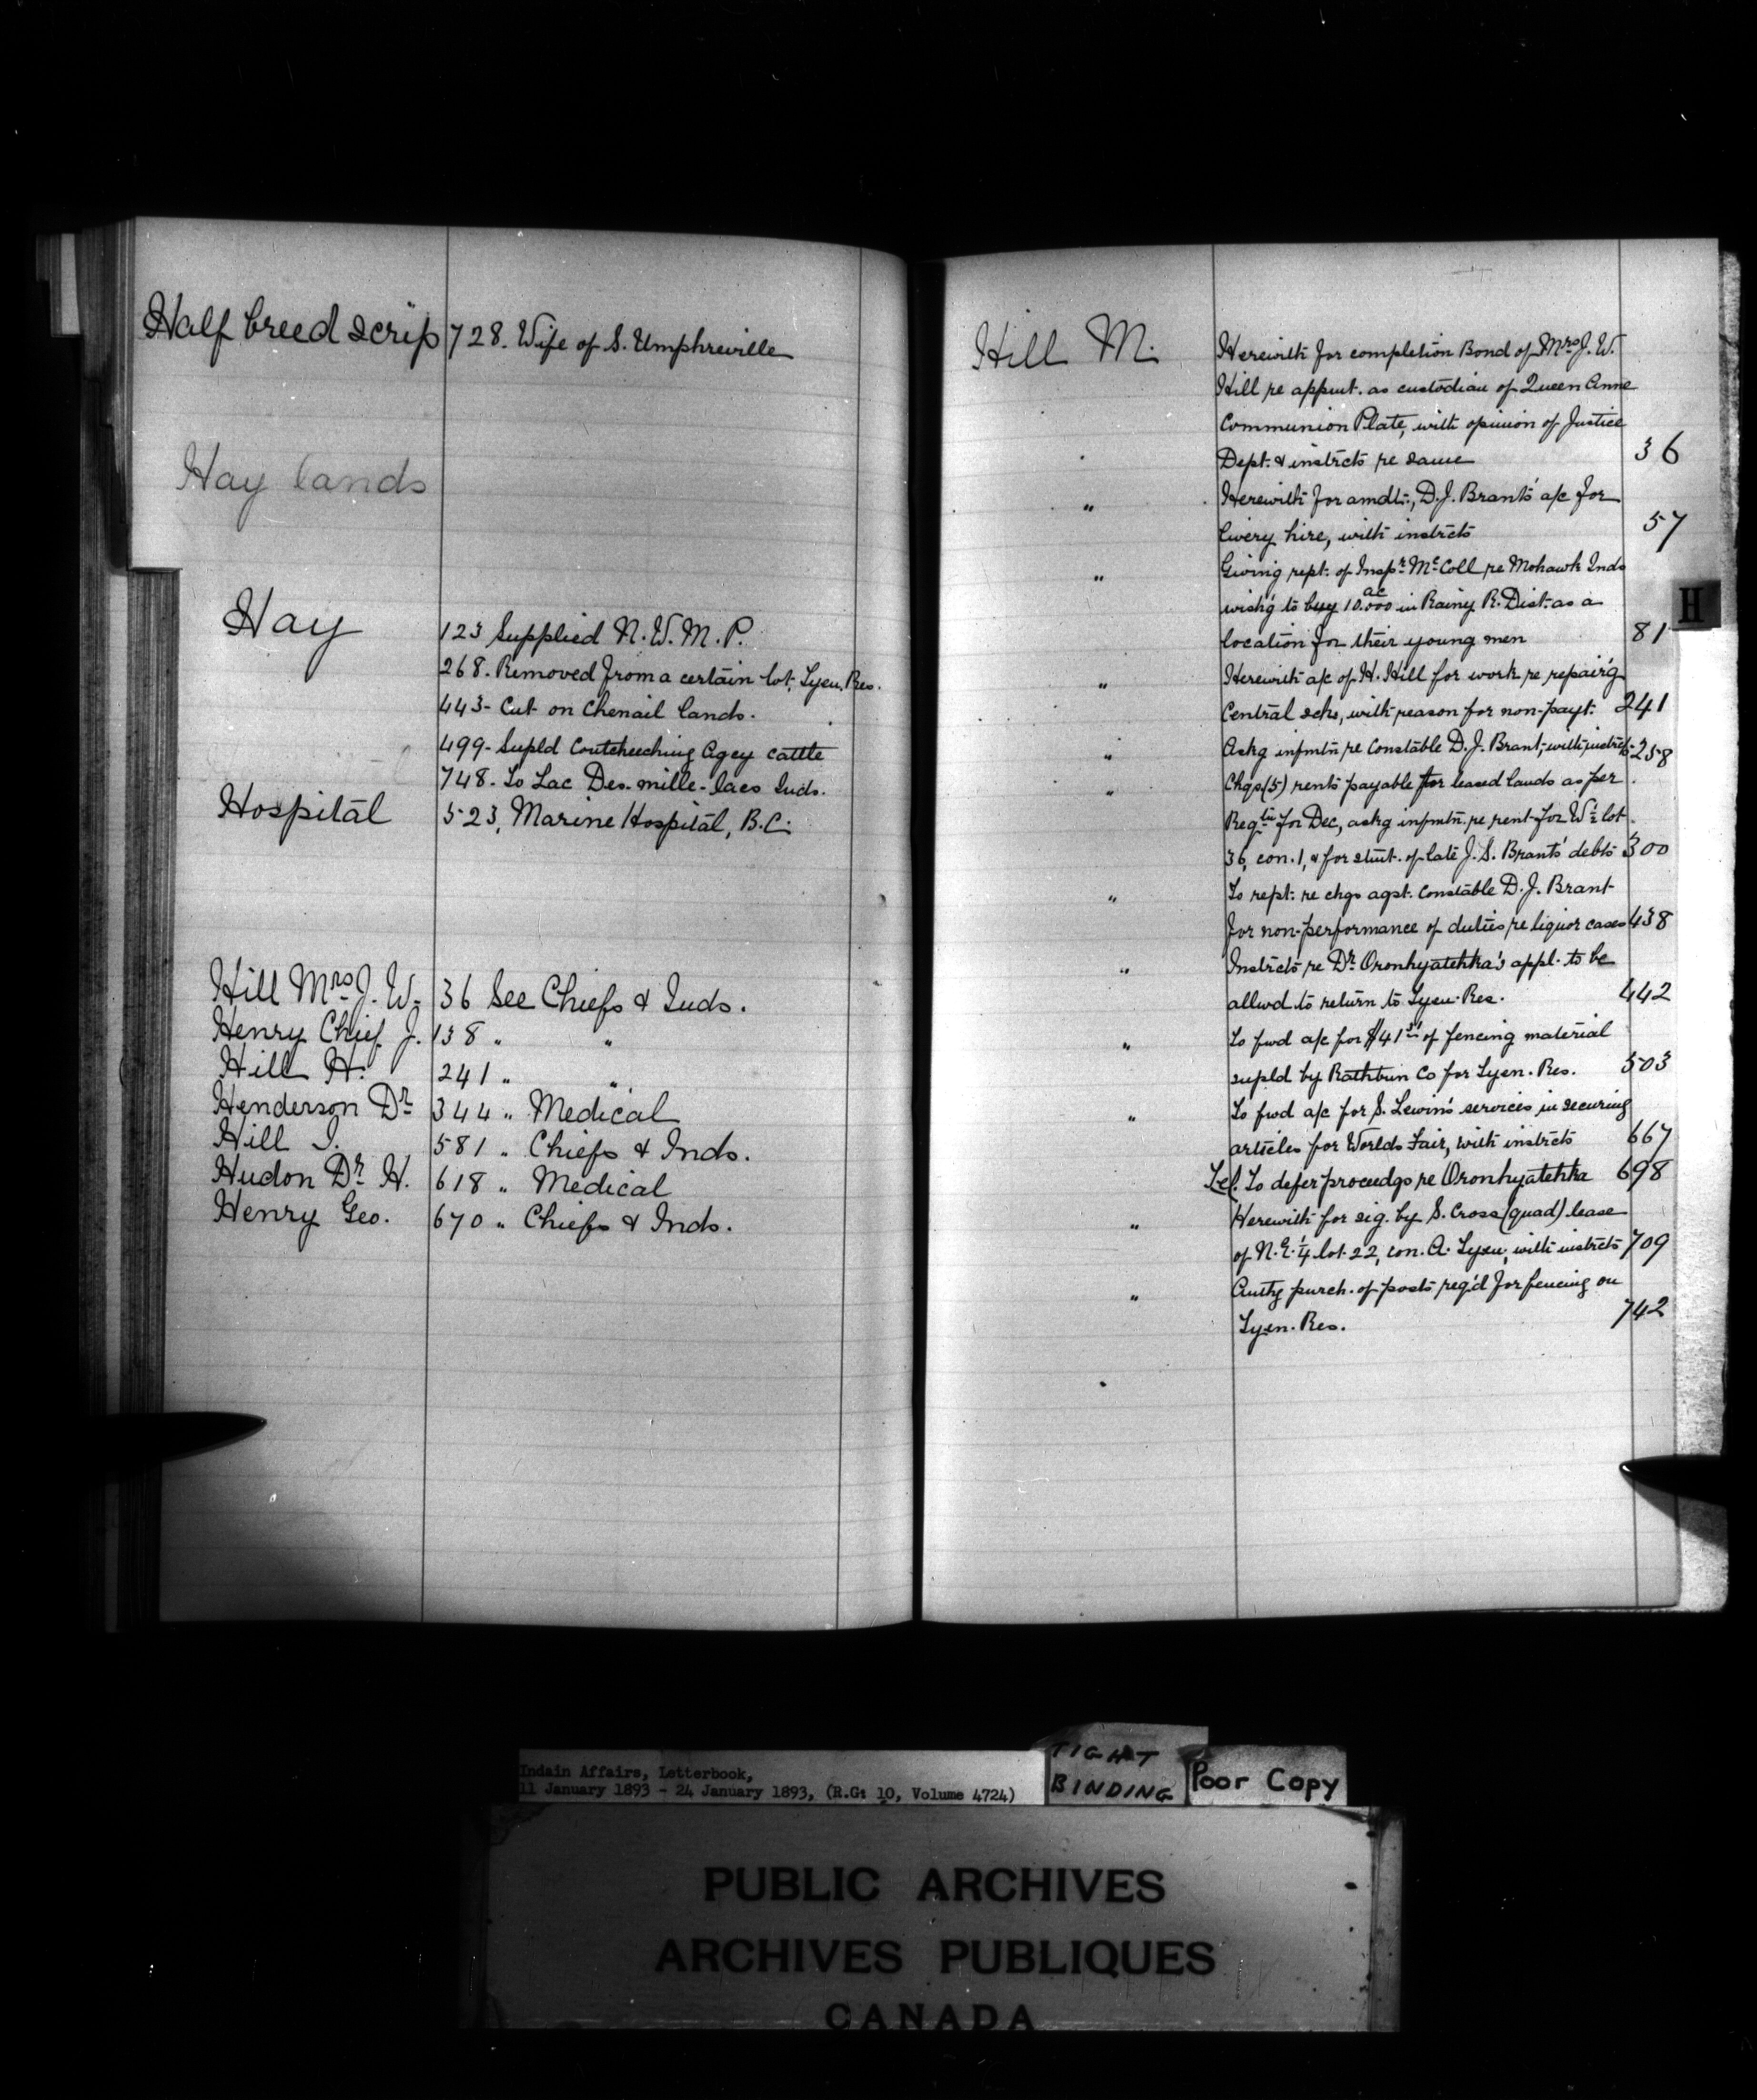 Half breed scrip 728. Wife of S. Umphreville
Hay lands
Hay 123 Supplied N. W. M. P.
268. Removed from a certain lot, Tyen. Res.
443- Cut on Chenail lands.
499- Supld Coutcheeching Agcy cattle
748- To Lac Des-mille-lacs Inds.
Hospital 523, Marine Hospital, B.C.
Hill Mrs J. W. 36 See Chiefs & Inds.
Henry Chief J. 138 " "
Hill H. 241 " "
Henderson Dr 344 " Medical
Hill I. 581 " Chiefs & Inds.
Hudon Dr H. 618 " Medical
Henry Geo. 670 " Chiefs & Inds.
Hill M. Herewith for completion Bond of Mrs J. W.
Hill re appmt. as custodian of Queen Anne
Communion Plate, with opinion of Justice
Dept. & instrcts re same 36
" Herewith for amdt., D. J. Brants' a/c for
livery hire, with instrcts 57
" Giving rept. of Inspr. McColl re Mohawk Inds
wish'g to buy 10.000 ac in Rainy R. Dist. as a
location for their young men 81
" Herewith a/c of H. Hill for work re repair'g
Central schs, with reason for non-payt. 241
" Askg infmtn re Constable D. J. Brant, with instrcts 258
" Chqs (5) rents payable for leased lands as per
Reqtn for Dec, askg infmtn. re rent for W½ lot
36, con. 1, & for stmt. of late J. S. Brants' debts 300
" To rept. re chgs agst. Constable D. J. Brant
for non-performance of duties re liquor cases 438
" Instrcts re Dr. Oronhyatehka's appl. to be
allwd to return to Tyen. Res. 442
" To fwd a/c for $41 31 of fencing material
supld by Rathbun Co for Tyen. Res. 503
" To fwd a/c for S. Lewin's services in securing
articles for Worlds Fair, with instrcts 667
Tel. To defer proceedgs re Oronhyatehka 698
" Herewith for sig. by S. Cross (quad) lease
of N.E. ¼ lot 22, con. A. Tyen, with instrcts 709
" Authg purch. of posts reqd for fencing on
Tyen. Res. 742
H
Indain Affairs, Letterbook,
11 January 1893 - 24 January 1893, (R.G: 10, Volume 4724)
TIGHT
BINDING
Poor Copy
PUBLIC ARCHIVES
ARCHIVES PUBLIQUES
CANADA